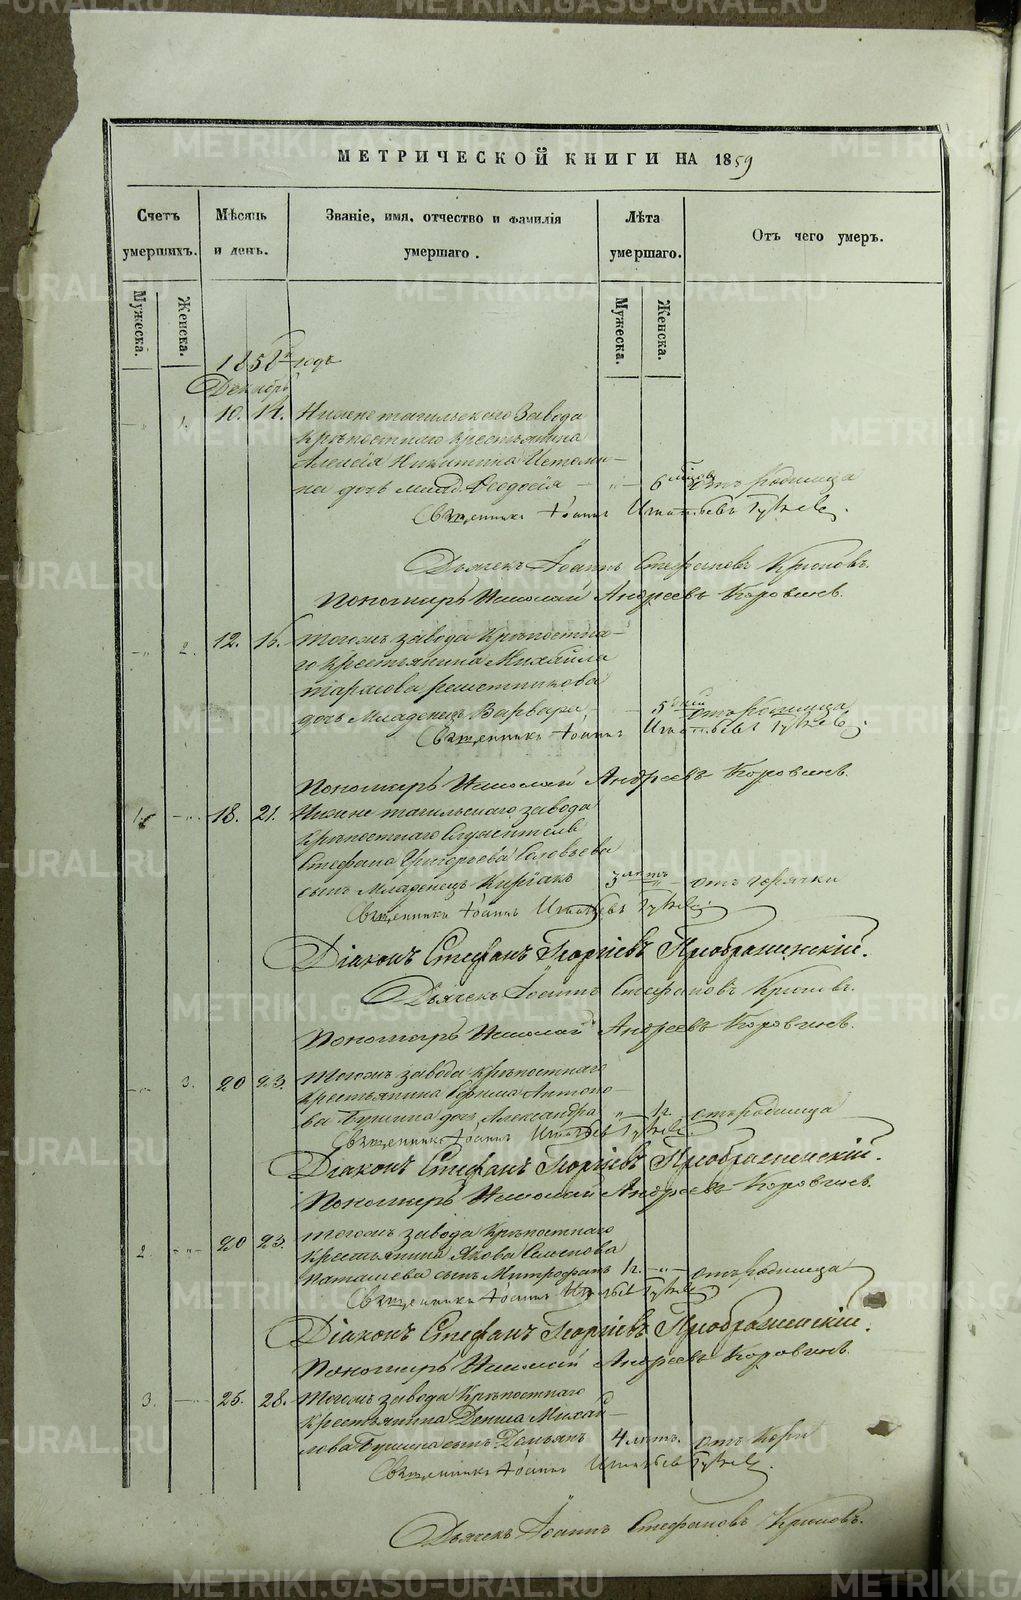 МЕТРИЧЕСКОЙ КНИГИ НА 1859
Счетъ умершихъ.
Мѣсяць и день.
Званіе, имя, отчество и фамилія умершаго.
Лѣта умершаго.
Отъ чего умеръ.
Мужеска.
Женска.
Мужеска.
Женска.
1858 годъ
Декабрь
1. 10. 14. Нижнетагильскаго Завода
крѣпостнаго крестьянина
Алексѣя Никитина Истоми-
на дочь млад. Феодосія 6 отъ родимца
Священникъ Іоаннъ Игнатьевъ
Дьячекъ Іоаннъ Стефановъ Крюковъ.
Пономарь Николай Андреевъ Коровинъ.
2. 12. 15. Тогожъ завода крѣпостна-
го крестьянина Михайла
Тарасова Решетникова
дочь Младенецъ Варвара 5 дней отъ родимца
Священникъ Іоаннъ Игнатьевъ
Пономарь Николай Андреевъ Коровинъ.
1. 18. 21. Нижнетагильскаго завода
крѣпостнаго Служителя
Стефана Григорьева Соловьева
сынъ Младенецъ Киріакъ 3 лѣтъ отъ горячки
Священникъ Іоаннъ Игнатьевъ
Діаконъ Стефанъ Георгіевъ Преображенскій.
Дьячекъ Іоаннъ Стефановъ Крюковъ.
Пономарь Николай Андреевъ Коровинъ.
3. 20 23. Тогожъ завода крѣпостнаго
крестьянина Ефима Антоно-
ва дочь Александра 1 г. отъ родимца
Священникъ Іоаннъ Игнатьевъ
Діаконъ Стефанъ Георгіевъ Преображенскій.
Пономарь Николай Андреевъ Коровинъ.
2. 20 23. Тогожъ завода крѣпостнаго
крестьянина Якова Семенова
сынъ Митрофанъ 1 г. отъ родимца
Священникъ Іоаннъ Игнатьевъ
Діаконъ Стефанъ Георгіевъ Преображенскій.
Пономарь Николай Андреевъ Коровинъ.
3. 25. 28. Тогожъ завода крѣпостнаго
крестьянина Дениса Михай-
лова сынъ Демьянъ 4 лѣтъ. отъ кори
Священникъ Іоаннъ Игнатьевъ
Дьячекъ Іоаннъ Стефановъ Крюковъ.
METRIKI.GASO-URAL.RU